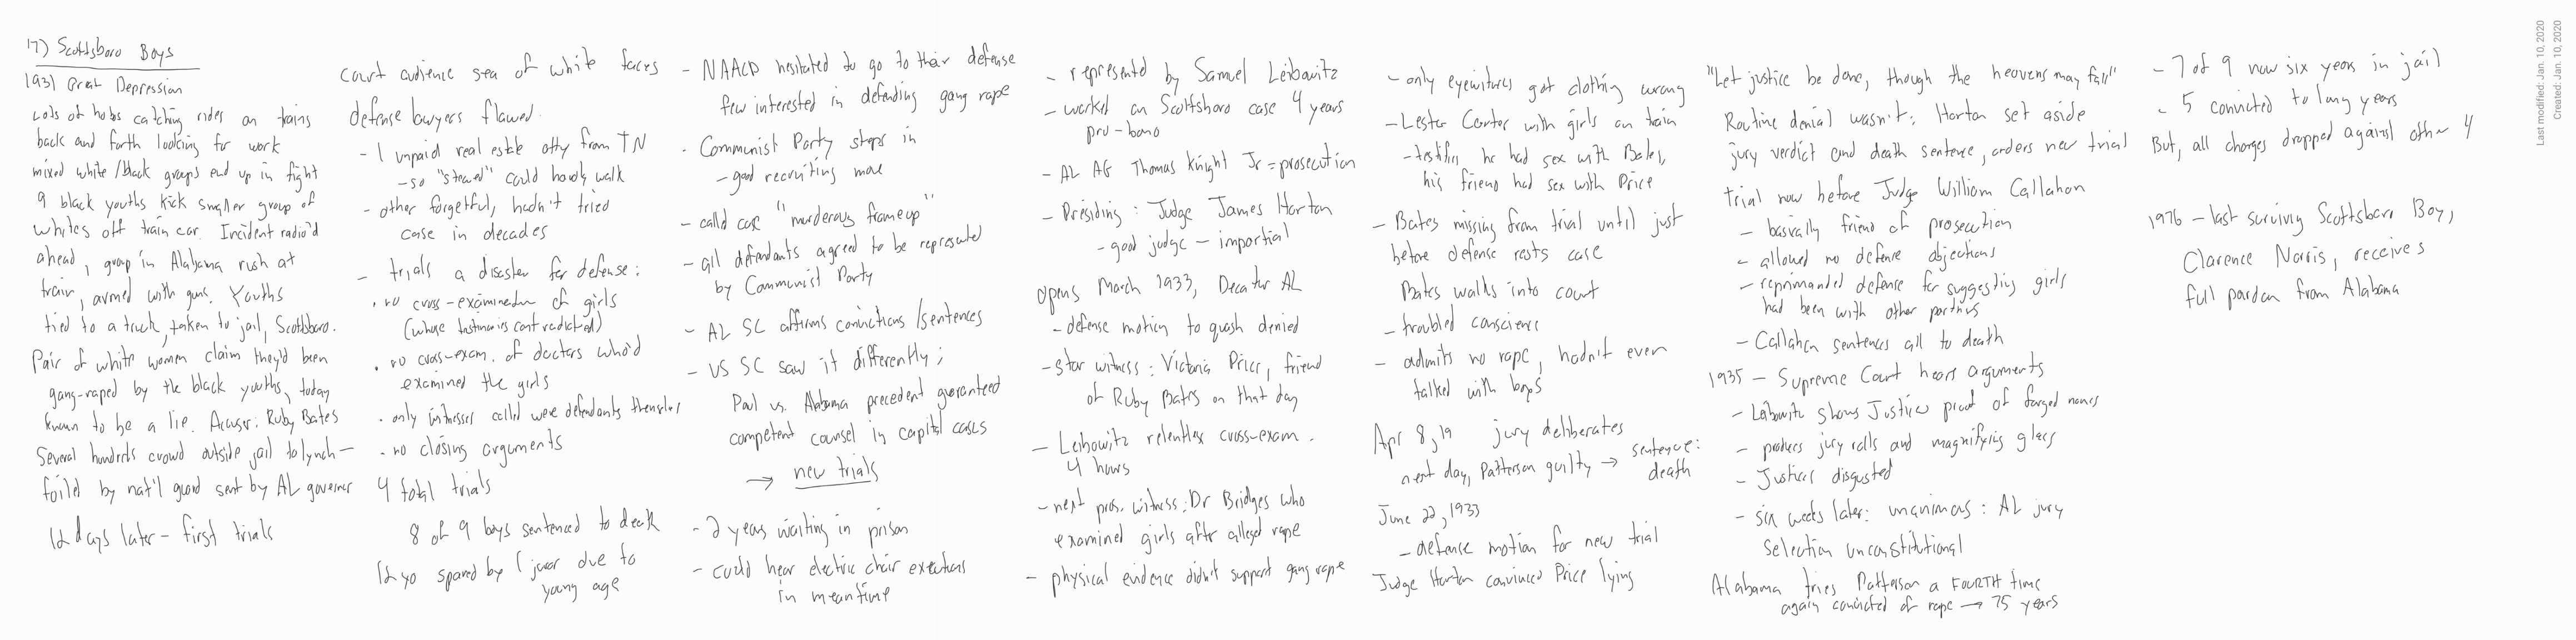 17) Scottsboro Boys
1931 Great Depression
Lots of hobos catching rides on trains
back and forth looking for work
mixed white/black groups end up in fight
9 black youths kick smaller group of
whites off train car. Incident radio'd
ahead, group in Alabama rush at
train, armed with guns. Youths
tied to a truck, taken to jail, Scottsboro.
Pair of white women claim they'd been
gang-raped by the black youths, today
known to be a lie. Accuser: Ruby Bates
Several hundreds crowd outside jail to lynch—
foiled by nat'l guard sent by AL governor
12 days later - first trials
court audience sea of white faces
defense lawyers flawed.
- 1 unpaid real estate atty from TN
- so "stewed" could hardly walk
- other forgetful, hadn't tried
case in decades
- trials a disaster for defense:
• no cross-examination of girls
(whose testimonies contradicted)
• no cross-exam. of doctors who'd
examined the girls
• only witnesses called were defendants themselves
• no closing arguments
4 total trials
8 of 9 boys sentenced to death
12 yo spared by 1 juror due to
young age
- NAACP hesitated to go to their defense
few interested in defending gang rape
- Communist Party steps in
- good recruiting move
- called case "murderous frameup"
- all defendants agreed to be represented
by Communist Party
- AL SC affirms convictions/sentences
- US SC saw it differently;
Powl vs. Alabama precedent guaranteed
competent counsel in capital cases
→ new trials
- 2 years waiting in prison
- could hear electric chair executions
in meantime
- represented by Samuel Leibowitz
- worked on Scottsboro case 4 years
pro-bono
- AL AG Thomas Knight Jr = prosecution
- Presiding: Judge James Horton
- good judge - impartial
opens March 1933, Decatur AL
- defense motion to quash denied
- star witness: Victoria Price, friend
of Ruby Bates on that day
- Leibowitz relentless cross-exam.
4 hours
- next pros. witness: Dr Bridges who
examined girls after alleged rape
- physical evidence didn't support gang rape
- only eyewitness got clothing wrong
- Lester Carter with girls on train
- testifies he had sex with Bates,
his friend had sex with Price
- Bates missing from trial until just
before defense rests case
Bates walks into court
- troubled conscience
- admits no rape, hadn't even
talked with boys
Apr 8, 19 jury deliberates
next day, Patterson guilty → sentence:
death
June 22, 1933
- defense motion for new trial
Judge Horton convinced Price lying
"Let justice be done, though the heavens may fall"
Routine denial wasn't: Horton set aside
jury verdict and death sentence, orders new trial
trial now before Judge William Callahan
- basically friend of prosecution
- allowed no defense objections
- reprimanded defense for suggesting girls
had been with other partners
- Callahan sentences all to death
1935 - Supreme Court hears arguments
- Leibowitz shows Justices proof of forged names
- produces jury rolls and magnifying glass
- Justices disgusted
- six weeks later: unanimous: AL jury
selection unconstitutional
Alabama tries Patterson a FOURTH time
again convicted of rape → 75 years
- 7 of 9 now six years in jail
- 5 convicted to long years
But, all charges dropped against other 4
1976 - last surviving Scottsboro Boy,
Clarence Norris, receives
full pardon from Alabama
Last modified: Jan. 10, 2020
Created: Jan. 10, 2020